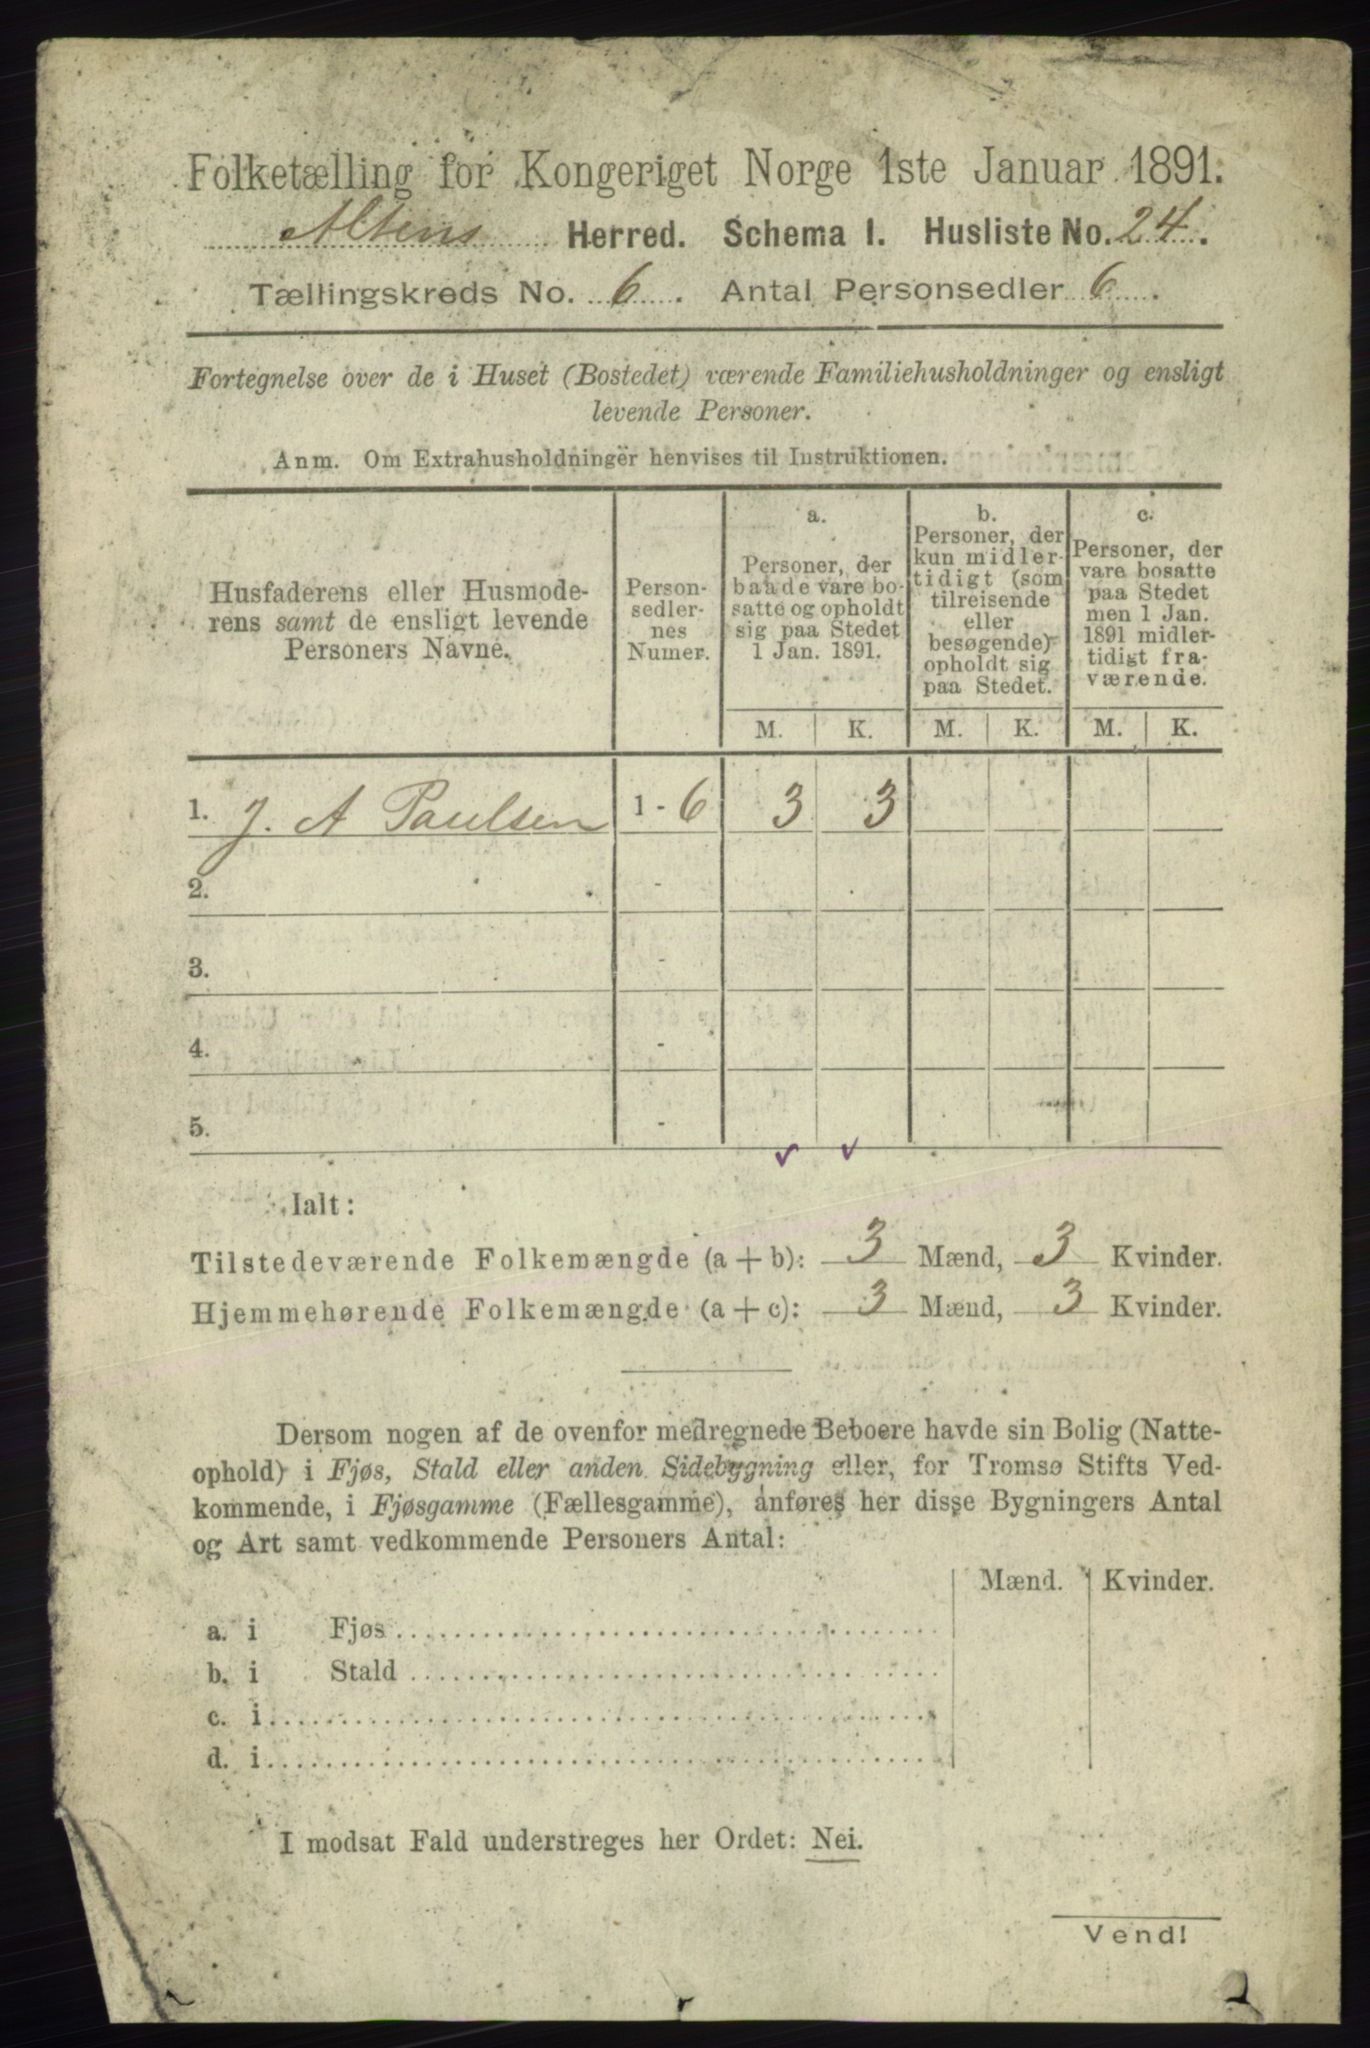 Folketælling for Kongeriget Norge 1ste Januar 1891.
Altens Herred. Schema I. Husliste No. 24.
Tællingskreds No. 6. Antal Personsedler 6.
Fortegnelse over de i Huset (Bostedet) værende Familiehusholdninger og ensligt
levende Personer.
Anm. Om Extrahusholdninger henvises til Instruktionen.
Husfaderens eller Husmode-
rens samt de ensligt levende
Personers Navne.
Person-
sedler-
nes
Numer.
a.
Personer, der
baade vare bo-
satte og opholdt
sig paa Stedet
1 Jan. 1891.
b.
Personer, der
kun midler-
tidigt (som
tilreisende
eller
besøgende)
opholdt sig
paa Stedet.
c.
Personer, der
vare bosatte
paa Stedet
men 1 Jan.
1891 midler-
tidigt fra-
værende.
M. K. M. K. M. K.
1. J. A Paulsen 1 - 6 3 3
2. -
3. -
4. -
5. -
Ialt:
Tilstedeværende Folkemængde (a + b): 3 Mænd, 3 Kvinder.
Hjemmehørende Folkemængde (a + c): 3 Mænd, 3 Kvinder.
Dersom nogen af de ovenfor medregnede Beboere havde sin Bolig (Natte-
ophold) i Fjøs, Stald eller anden Sidebygning eller, for Tromsø Stifts Ved-
kommende, i Fjøsgamme (Fællesgamme), anføres her disse Bygningers Antal
og Art samt vedkommende Personers Antal:
Mænd. Kvinder.
a. i Fjøs
b. i Stald
c. i
d. i
I modsat Fald understreges her Ordet: Nei.
Vend!